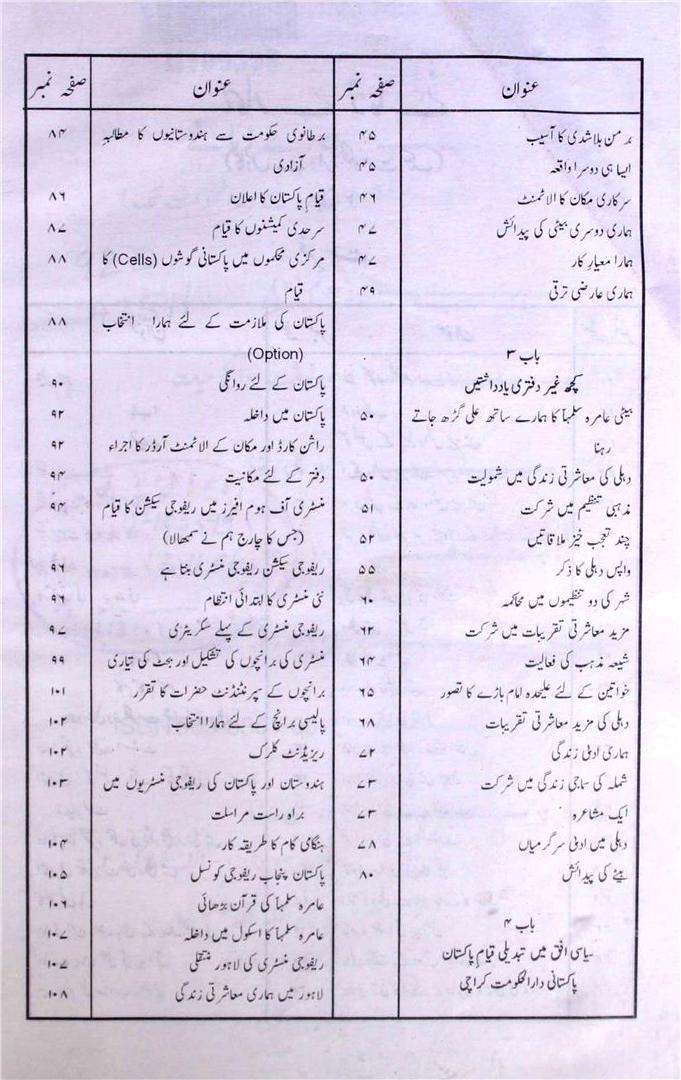 عنوان
صفحہ نمبر
بر من بلاشدی کا آسیب ۴۵
ایسا ہی دوسرا واقعہ ۴۵
سرکاری مکان کا الاٹمنٹ ۴۶
ہماری دوسری بیٹی کی پیدائش ۴۷
ہمارا معیارِ کار ۴۷
ہماری عارضی ترقی ۴۹
باب ۳
کچھ غیر دفتری یادداشتیں
بیٹی عامرہ سلمہا کا ہمارے ساتھ علی گڑھ جاتے ۵۰
رہنا
دہلی کی معاشرتی زندگی میں شمولیت ۵۰
مذہبی تنظیم میں شرکت ۵۱
چند تعجب خیز ملاقاتیں ۵۲
واپس دہلی کا ذکر ۵۵
شہر کی دو تنظیموں میں محاکمہ ۶۰
مزید معاشرتی تقریبات میں شرکت ۶۲
شیعہ مذہب کی فعالیت ۶۴
خواتین کے لئے علیحدہ امام باڑے کا تصور ۶۵
دہلی کی مزید معاشرتی تقریبات ۶۸
ہماری ادبی زندگی ۷۲
شملہ کی سماجی زندگی میں شرکت ۷۳
ایک مشاعرہ ۷۳
دہلی میں ادبی سرگرمیاں ۷۸
بیٹے کی پیدائش ۸۰
باب ۴
سیاسی افق میں تبدیلی قیام پاکستان
پاکستانی دارالحکومت کراچی
عنوان
صفحہ نمبر
برطانوی حکومت سے ہندوستانیوں کا مطالبہِ ۸۴
آزادی
قیام پاکستان کا اعلان ۸۶
سرحدی کمیشنوں کا قیام ۸۷
مرکزی محکموں میں پاکستانی گوشوں (Cells) کا ۸۸
قیام
پاکستان کی ملازمت کے لئے ہمارا انتخاب ۸۸
(Option)
پاکستان کے لئے روانگی ۹۰
پاکستان میں داخلہ ۹۲
راشن کارڈ اور مکان کے الاٹمنٹ آرڈر کا اجراء ۹۲
دفتر کے لئے مکانیت ۹۴
منسٹری آف ہوم افیرز میں ریفوجی سیکشن کا قیام ۹۴
(جس کا چارج ہم نے سمبھالا)
ریفوجی سیکشن ریفوجی منسٹری بنتا ہے ۹۶
نئی منسٹری کا ابتدائی انتظام ۹۶
ریفوجی منسٹری کے پہلے سکریٹری ۹۷
منسٹری کی برانچوں کی تشکیل اور بجٹ کی تیاری ۹۹
برانچوں کے سپرنٹنڈنٹ حضرات کا تقرر ۱۰۱
پالیسی برانچ کے لئے ہمارا انتخاب ۱۰۲
ریزیڈنٹ کلرک ۱۰۲
ہندوستان اور پاکستان کی ریفوجی منسٹریوں میں ۱۰۳
براہ راست مراسلت
ہنگامی کام کا طریقہ کار ۱۰۴
پاکستان پنجاب ریفوجی کونسل ۱۰۵
عامرہ سلمہا کی قرآن پڑھائی ۱۰۶
عامرہ سلمہا کا اسکول میں داخلہ ۱۰۷
ریفوجی منسٹری کی لاہور منتقلی ۱۰۷
لاہور میں ہماری معاشرتی زندگی ۱۰۸